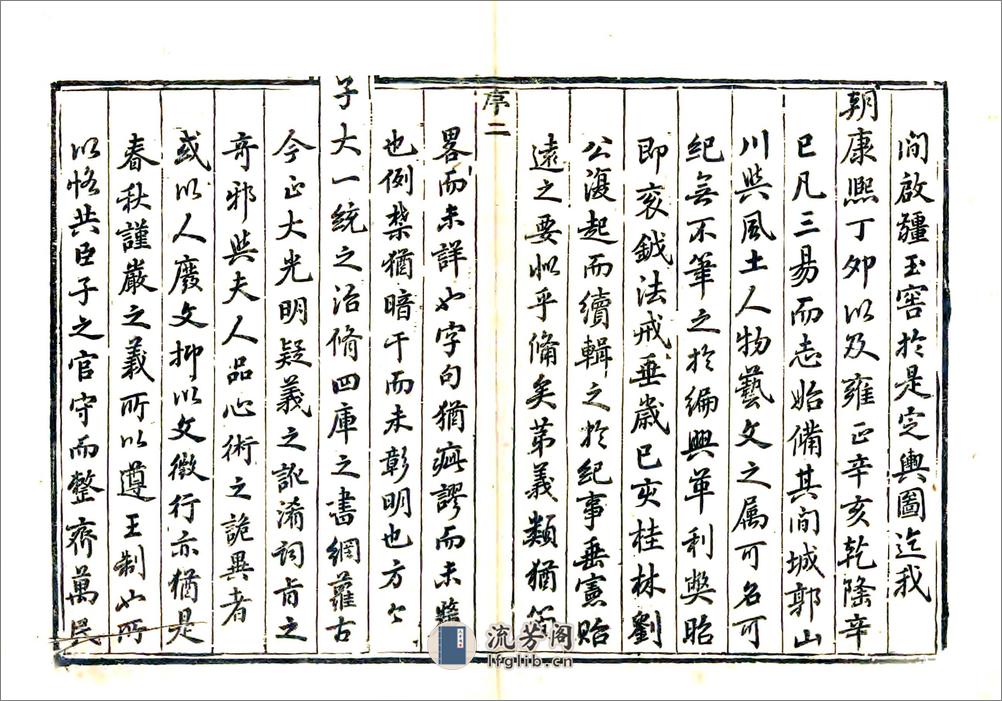 间啟疆玉窖於是定輿圖迄我
朝康熙丁夘以及雍正辛亥乾隆辛
巳凡三易而志始備其间城郭山
川與風土人物藝文之属可名可
紀無不筆之於編興革利獘昭
即衮鉞法戒垂歳已亥桂林劉
公復起而續輯之於紀事垂憲貽
遠之要似乎備矣苐義類猶
序二
畧而未詳也字句猶疵謬而未
也例禁猶暗干而未彰明也方今
子大一統之治脩四庫之書網羅古
今正大光明疑義之訛淆词旨之
竒邪與夫人品心術之詭異者
或以人廢文抑以文徵行亦猶是
春秋謹嚴之義所以遵王制也所
以恪共臣子之官守而整齊萬民
流芳阁
lfglib.cn